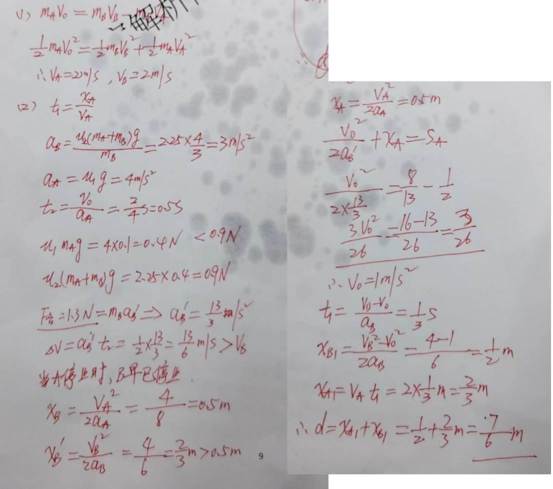 (1) mAV0 = mBVB - mAVA
½mAV0² = ½mBVB² + ½mAVA²
∴ VA = 2m/s, VB = 2m/s
(2) t1 = xA/VA
aB = u2(mA+mB)g/mB = 2.25×4/3 = 3m/s²
aA = u1g = 4m/s²
t2 = V0/aA = 2/4 s = 0.5s
u1mAg = 4×0.1 = 0.4N < 0.9N
u2(mA+mB)g = 2.25×0.4 = 0.9N
= 1.3N = mBaB' ⇒ aB' = 13/3 m/s²
ΔV = aB't2 = ½×13/3 = 13/6 m/s > VB
当A停止时,B早已停止
xB = VA²/2aA = 4/8 = 0.5m
xB' = VB²/2aB = 4/6 = 2/3 m > 0.5m
9
xA = VA²/2aA = 0.5m
V0²/2aB' + xA = SA
V0²/2×13/3 = 8/13 - 1/2
3V0²/26 = 16-13/26 = 3/26
∴ V0 = 1m/s²
t1 = V0-V0/aB = 1/3 s
xB1 = VB²-V0²/2aB = 4-1/6 = 1/2 m
xA1 = VAt1 = 2×1/3 m = 2/3 m
∴ d = xA1 + xB1 = 1/2 + 2/3 m = 7/6 m
了解析